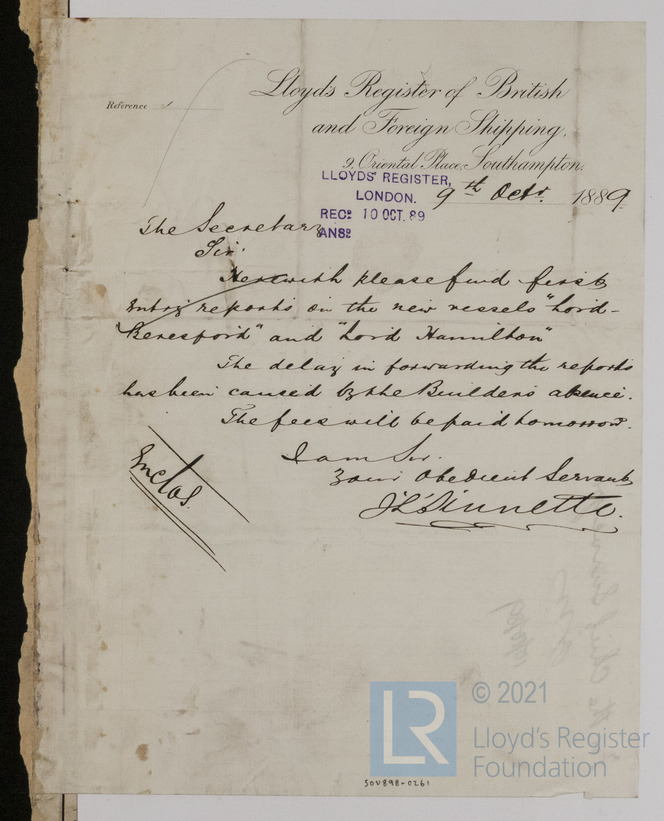 Reference
Lloyd's Register of British
and Foreign Shipping,
9, Oriental Place, Southampton.
LLOYDS' REGISTER,
LONDON.
REC? 10 OCT. 89
ANS?
9th Octr. 1889
The Secretary
Sir
Herewith please find first
Entry reports on the new vessels "Lord-
Beresford" and "Lord Hamilton"
The delay in forwarding the reports
has been caused by the Builders absence.
The fees will be paid tomorrow.
I am Sir.
Your Obedient Servant
Enclos.
© 2021
LR
Lloyd's Register
Foundation
SOV898-0261